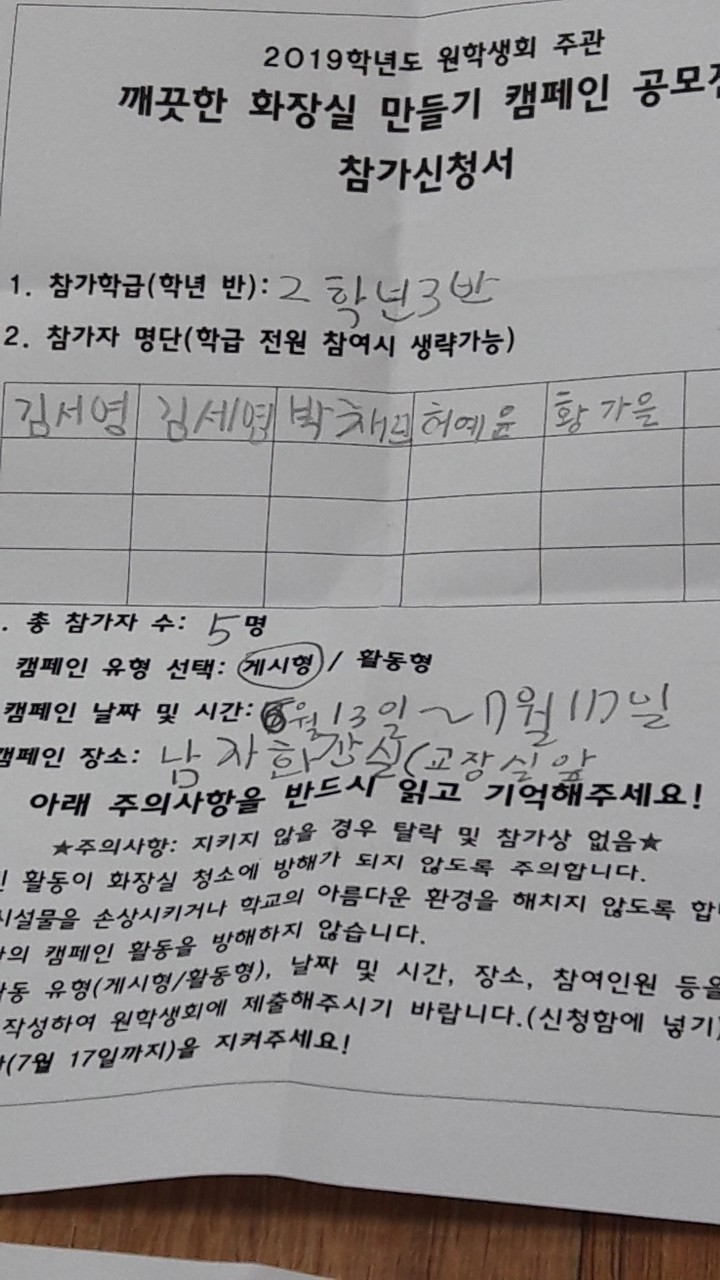 2019학년도 원학생회 주관
깨끗한 화장실 만들기 캠페인 공모전
참가신청서
1. 참가학급(학년 반): 2학년3반
2. 참가자 명단(학급 전원 참여시 생략가능)
김서영 김세엽 박채민 허예윤 황가을
. 총 참가자 수: 5명
캠페인 유형 선택: 게시형 / 활동형
캠페인 날짜 및 시간: 6월13일~7월17일
캠페인 장소: 남자화장실(교장실 앞
아래 주의사항을 반드시 읽고 기억해주세요!
★주의사항: 지키지 않을 경우 탈락 및 참가상 없음★
인 활동이 화장실 청소에 방해가 되지 않도록 주의합니다.
시설물을 손상시키거나 학교의 아름다운 환경을 해치지 않도록 합
의 캠페인 활동을 방해하지 않습니다.
유형(게시형/활동형), 날짜 및 시간, 장소, 참여인원 등을
작성하여 원학생회에 제출해주시기 바랍니다.(신청함에 넣기)
(7월 17일까지)을 지켜주세요!